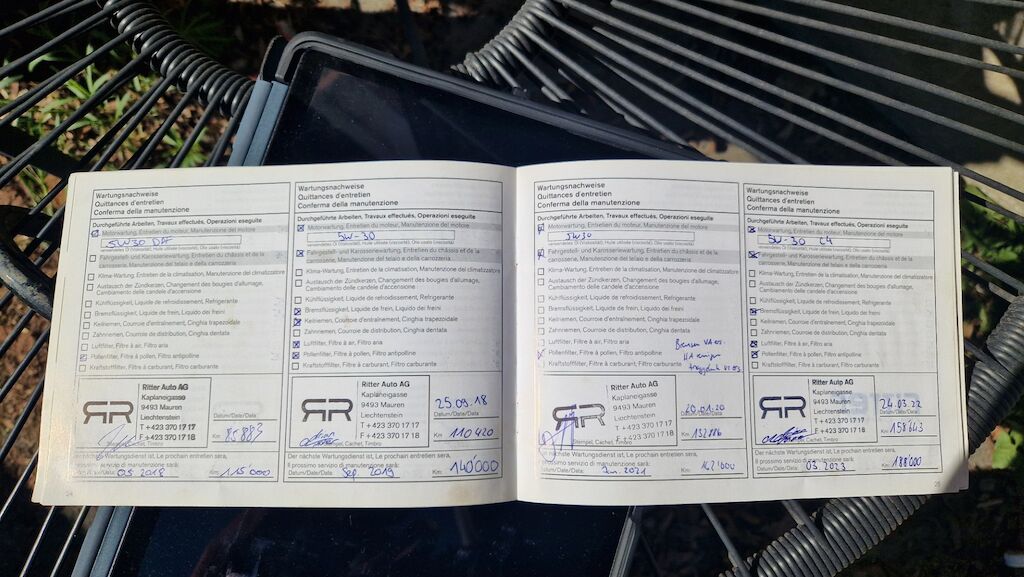 Wartungsnachweise
Quittances d'entretien
Conferma della manutenzione
Durchgeführte Arbeiten, Travaux effectués, Operazioni eseguite
Motorwartung, Entretien du moteur, Manutenzione del motore
5W30
verwendetes Öl (Viskosität), Huile utilisée (viscosité), Olio usato (viscosità)
Fahrgestell- und Karosseriewartung, Entretien du châssis et de la
carrosserie, Manutenzione del telaio e della carrozzeria
Klima-Wartung, Entretien de la climatisation, Manutenzione del climatizzatore
Austausch der Zündkerzen, Changement des bougies d'allumage,
Cambiamento delle candele d'accensione
Kühlflüssigkeit, Liquide de refroidissement, Refrigerante
Bremsflüssigkeit, Liquide de frein, Liquido dei freni
Keilriemen, Courroie d'entraînement, Cinghia trapezoidale
Zahnriemen, Courroie de distribution, Cinghia dentata
Luftfilter, Filtre à air, Filtro aria
Pollenfilter, Filtre à pollen, Filtro antipolline
Kraftstofffilter, Filtre à carburant, Filtro carburante
RR
Ritter Auto AG
Kaplaneigasse
9493 Mauren
Liechtenstein
T +423 370 17 17
F +423 370 17 18
Datum/Date/Data:
Stempel, Cachet, Timbro
Km: 85883
Der nächste Wartungsdienst ist, Le prochain entretien sera,
Il prossimo servizio di manutenzione sarà:
Datum/Date/Data: 09.2018 Km: 115000
24
Wartungsnachweise
Quittances d'entretien
Conferma della manutenzione
Durchgeführte Arbeiten, Travaux effectués, Operazioni eseguite
Motorwartung, Entretien du moteur, Manutenzione del motore
5W-30
verwendetes Öl (Viskosität), Huile utilisée (viscosité), Olio usato (viscosità)
Fahrgestell- und Karosseriewartung, Entretien du châssis et de la
carrosserie, Manutenzione del telaio e della carrozzeria
Klima-Wartung, Entretien de la climatisation, Manutenzione del climatizzatore
Austausch der Zündkerzen, Changement des bougies d'allumage,
Cambiamento delle candele d'accensione
Kühlflüssigkeit, Liquide de refroidissement, Refrigerante
Bremsflüssigkeit, Liquide de frein, Liquido dei freni
Keilriemen, Courroie d'entraînement, Cinghia trapezoidale
Zahnriemen, Courroie de distribution, Cinghia dentata
Luftfilter, Filtre à air, Filtro aria
Pollenfilter, Filtre à pollen, Filtro antipolline
Kraftstofffilter, Filtre à carburant, Filtro carburante
RR
Ritter Auto AG
Kaplaneigasse
9493 Mauren
Liechtenstein
T +423 370 17 17
F +423 370 17 18
25.09.18
Datum/Date/Data:
Km: 110420
Der nächste Wartungsdienst ist, Le prochain entretien sera,
Il prossimo servizio di manutenzione sarà:
Datum/Date/Data: Sep. 2019 Km: 140'000
Wartungsnachweise
Quittances d'entretien
Conferma della manutenzione
Durchgeführte Arbeiten, Travaux effectués, Operazioni eseguite
Motorwartung, Entretien du moteur, Manutenzione del motore
5W30
verwendetes Öl (Viskosität), Huile utilisée (viscosité), Olio usato (viscosità)
Fahrgestell- und Karosseriewartung, Entretien du châssis et de la
carrosserie, Manutenzione del telaio e della carrozzeria
Klima-Wartung, Entretien de la climatisation, Manutenzione del climatizzatore
Austausch der Zündkerzen, Changement des bougies d'allumage,
Cambiamento delle candele d'accensione
Kühlflüssigkeit, Liquide de refroidissement, Refrigerante
Bremsflüssigkeit, Liquide de frein, Liquido dei freni
Keilriemen, Courroie d'entraînement, Cinghia trapezoidale
Zahnriemen, Courroie de distribution, Cinghia dentata
Luftfilter, Filtre à air, Filtro aria
Pollenfilter, Filtre à pollen, Filtro antipolline
Kraftstofffilter, Filtre à carburant, Filtro carburante
Bremsen VA
HA
RR
Ritter Auto AG
Kaplaneigasse
9493 Mauren
Liechtenstein
T +423 370 17 17
F +423 370 17 18
20.01.20
Datum/Date/Data:
Stempel, Cachet, Timbro
Km: 132886
Der nächste Wartungsdienst ist, Le prochain entretien sera,
Il prossimo servizio di manutenzione sarà:
Datum/Date/Data: Jan. 2021 Km: 162'000
Wartungsnachweise
Quittances d'entretien
Conferma della manutenzione
Durchgeführte Arbeiten, Travaux effectués, Operazioni eseguite
Motorwartung, Entretien du moteur, Manutenzione del motore
5W-30 C4
verwendetes Öl (Viskosität), Huile utilisée (viscosité), Olio usato (viscosità)
Fahrgestell- und Karosseriewartung, Entretien du châssis et de la
carrosserie, Manutenzione del telaio e della carrozzeria
Klima-Wartung, Entretien de la climatisation, Manutenzione del climatizzatore
Austausch der Zündkerzen, Changement des bougies d'allumage,
Cambiamento delle candele d'accensione
Kühlflüssigkeit, Liquide de refroidissement, Refrigerante
Bremsflüssigkeit, Liquide de frein, Liquido dei freni
Keilriemen, Courroie d'entraînement, Cinghia trapezoidale
Zahnriemen, Courroie de distribution, Cinghia dentata
Luftfilter, Filtre à air, Filtro aria
Pollenfilter, Filtre à pollen, Filtro antipolline
Kraftstofffilter, Filtre à carburant, Filtro carburante
RR
Ritter Auto AG
Kaplaneigasse
9493 Mauren
Liechtenstein
T +423 370 17 17
F +423 370 17 18
24.03.22
Datum/Date/Data:
Km: 158643
Der nächste Wartungsdienst ist, Le prochain entretien sera,
Il prossimo servizio di manutenzione sarà:
Datum/Date/Data: 03.2023 Km: 188'000
25